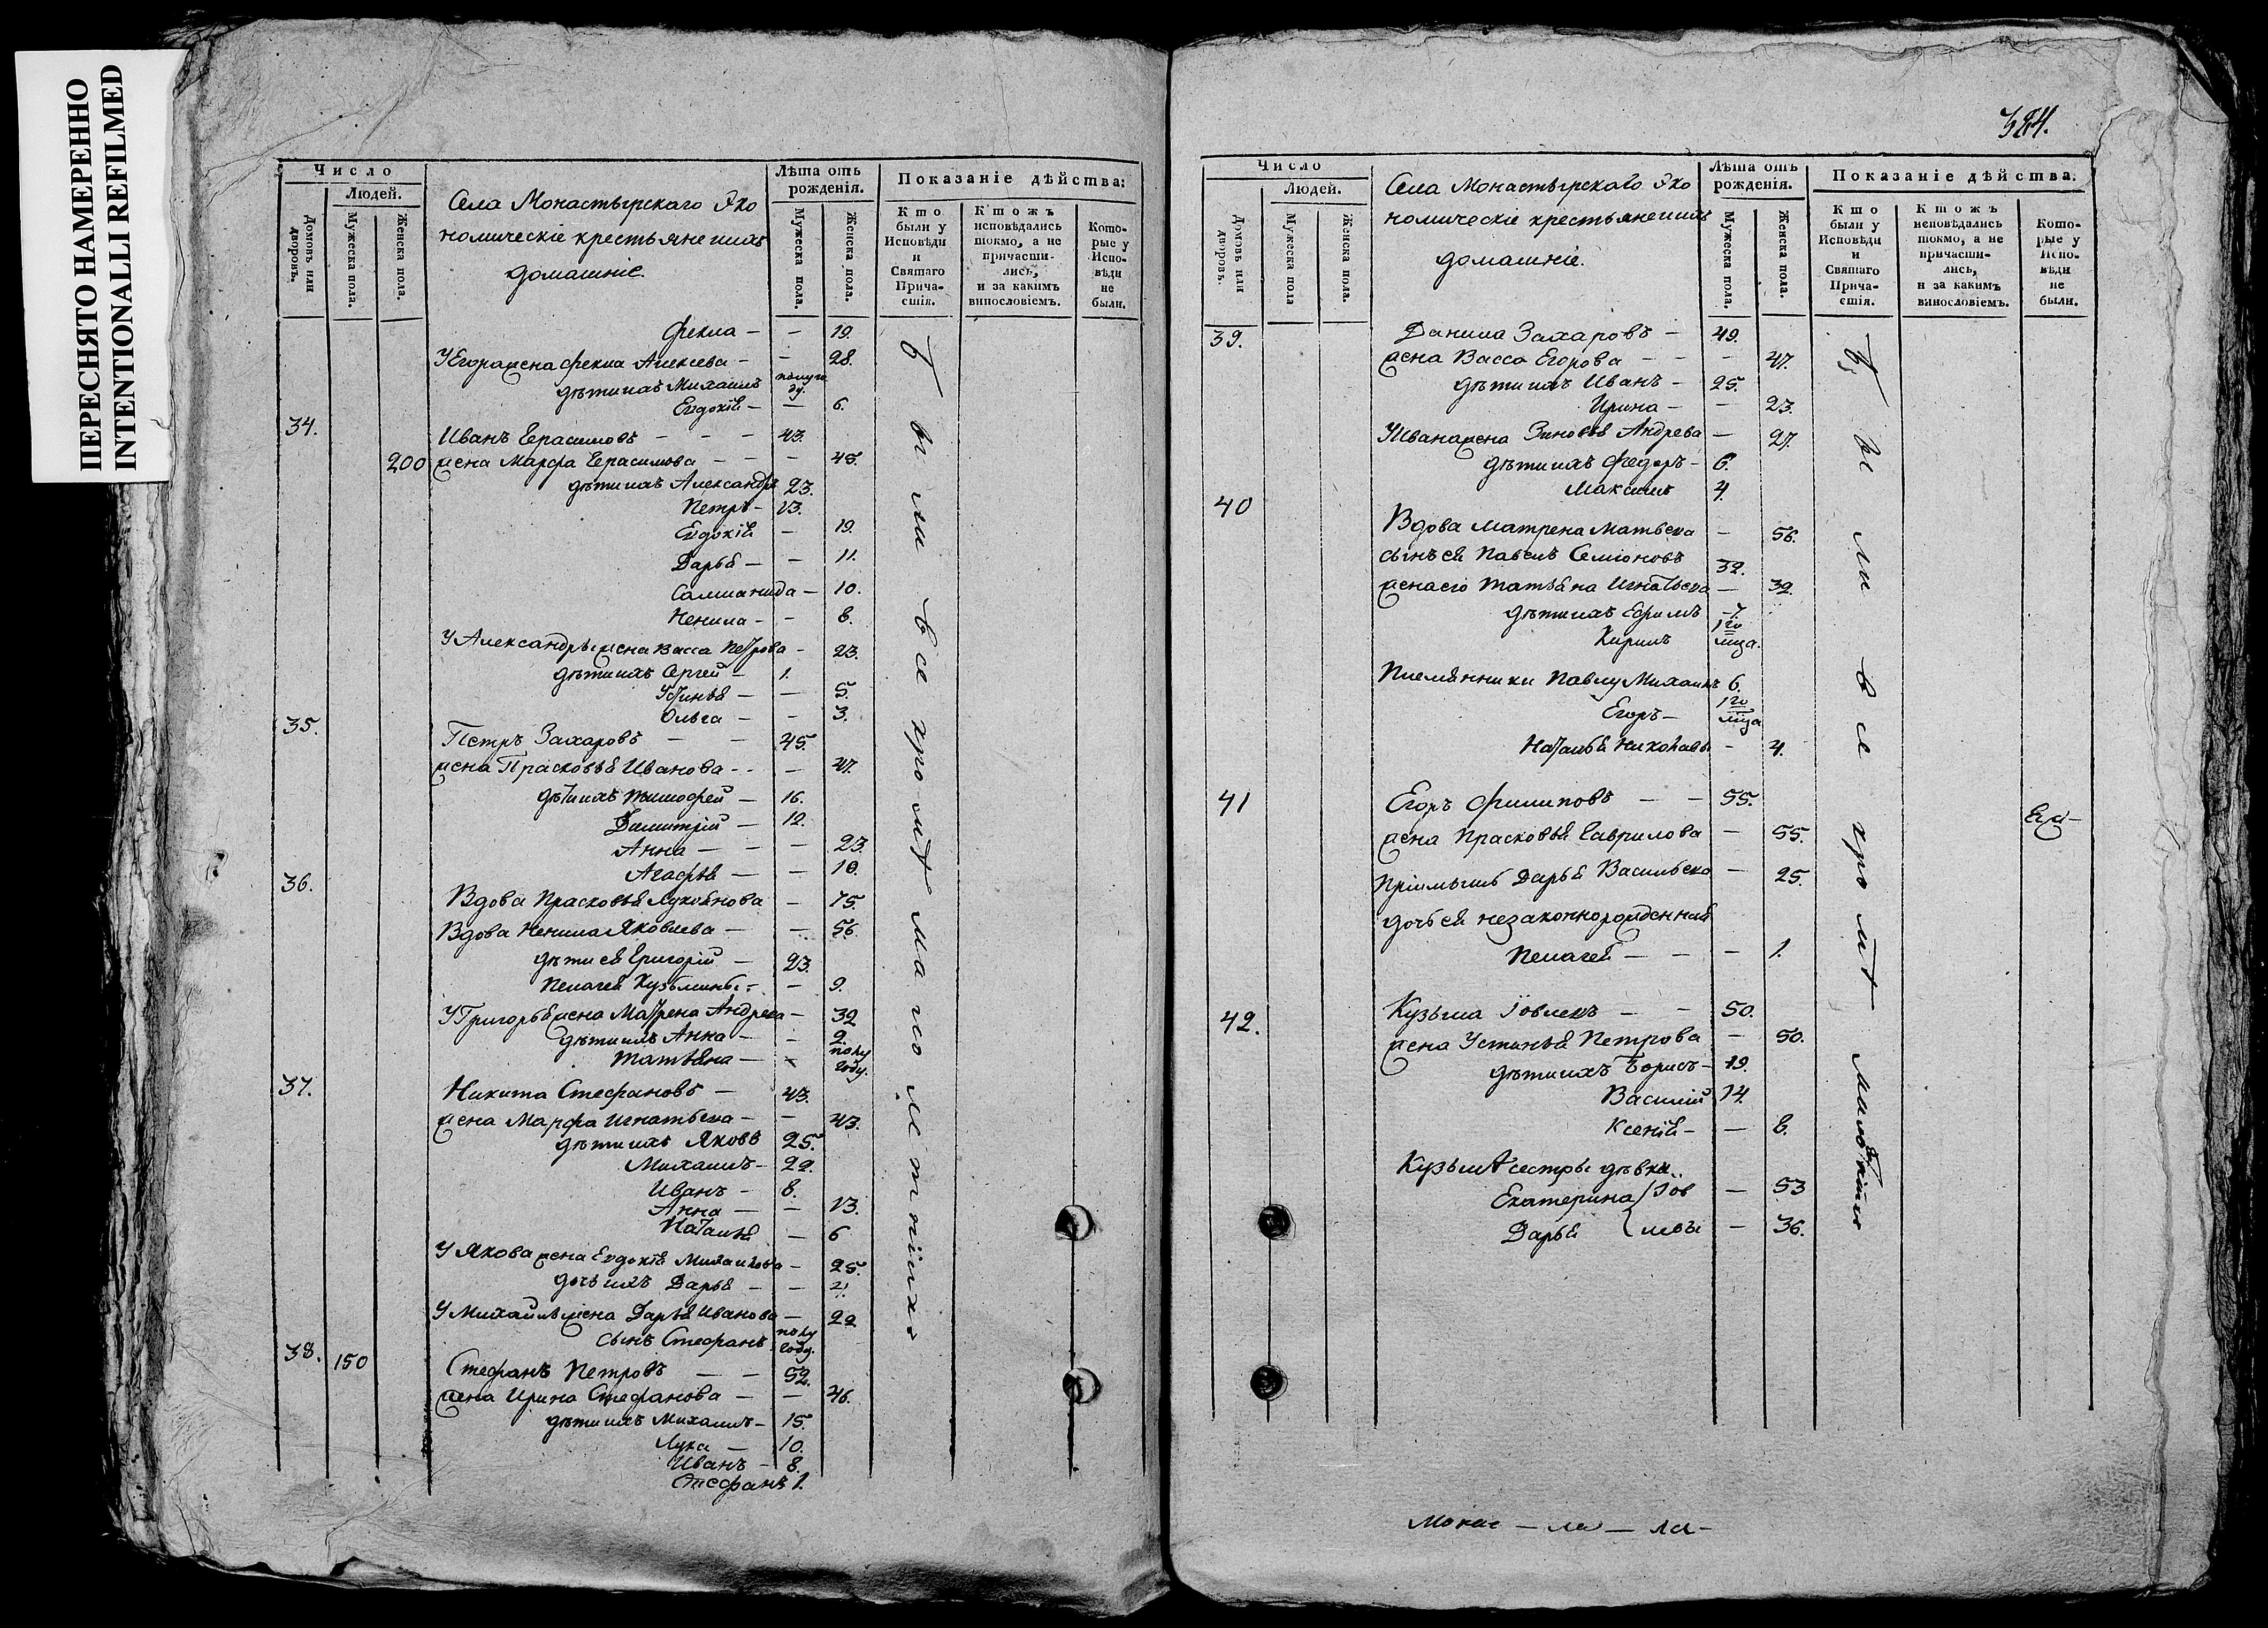 ПЕРЕСНЯТО НАМЕРЕННО
INTENTIONALLI REFILMED
Число
Людей.
Домовъ или дворовъ.
Мужеска пола.
Женска пола.
Села Монастырскаго Эко
номическіе крестьяне ихъ
домашніе.
Лѣта отъ рожденія.
Мужеска пола.
Женска пола.
Показаніе дѣйства:
Кто были у Исповѣди и Святаго Прича-стія.
Ктожъ исповѣдались токмо, а не причасти-лись, и за какимъ винословіемъ.
Кото-рые у Испо-вѣди не были.
Фекла — — 19.
У Егора жена Фекла Алексева — — 28.
дѣти ихъ Михаилъ полуго ду.
Евдокія — — 6.
34. Иванъ Герасимовъ — — — 43.
200 жена Марфа Герасимова — — — 45.
дѣти ихъ Александръ 23.
Петръ — 13.
Евдокія — 19.
Дарья — — 11.
Саломанида — 10.
Ненила — — 8.
У Александры жена Васса Петрова — 23.
дѣти ихъ Сергей — 1.
Устинья — — 5.
Ольга — — 3.
35. Петръ Захаровъ — — 45.
жена Прасковья Иванова — — — 47.
дѣти ихъ Тимофей — 16.
Димитрій — 12.
Анна — — — 23.
Агафья — — 10.
36. Вдова Прасковья Лукоянова — 75.
Вдова Ненила Яковлева — — 56.
дѣти ея Григорій — 23.
Пелагея Кузьмины — — 9.
У Григорья жена Матрена Андреева — 32
дѣти ихъ Анна — — 2.
Татьяна — — полу году.
37. Никита Стефановъ — 43.
жена Марфа Игнатьева — — 43.
дѣти ихъ Яковъ 25.
Михаилъ — 22.
Иванъ — 8.
Анна — — 13.
Наталья — 6
У Якова жена Евдокія Михайлова — 25.
дочь ихъ Дарья — — 4.
У Михайлы жена Дарья Иванова — 22
сынъ Стефанъ полу году.
38. 150 Стефанъ Петровъ — — 52.
жена Ирина Стефанова — — 46.
дѣти ихъ Михаилъ — 15.
Лука — 10.
Иванъ — 8.
Стефанъ 1.
Были все кромѣ малолѣтнихъ
384.
Число
Людей.
Домовъ или дворовъ.
Мужеска пола
Женска пола.
Села Монастырскаго Эко
номическіе крестьяне ихъ
домашніе.
Лѣта отъ рожденія.
Мужеска пола.
Женска пола.
Показаніе дѣйства.
Кто были у Исповѣди и Святаго Прича-стія.
Ктожъ исповѣдались токмо, а не причасти-лись, и за какимъ винословіемъ.
Кото-рые у Испо-вѣди не были.
39. Данила Захаровъ — 49.
жена Васса Егорова — — — 47.
дѣти ихъ Иванъ — 25.
Ирина — — 23.
У Ивана жена Зиновья Андрева — 27.
дѣти ихъ Федоръ — 6.
Максимъ 4.
40 Вдова Матрена Матвева — 56.
сынъ ея Павелъ Семіоновъ 32.
жена его Татьяна Игнатьева — 32.
дѣти ихъ Ефимъ — 7.
Кирилъ 1го мца.
Племянники Павлу Михаилъ 6.
Егоръ — 1го мца
Наталья Николавы — 4.
41 Егоръ Филиповъ — — 55.
жена Прасковья Гаврилова — 55.
Пріимышъ Дарья Васильева — 25.
дочь ея незаконнорожденная
Пелагея — — — 1.
42. Кузьма Іовлевъ — — 50.
жена Устинья Петрова — 50.
дѣти ихъ Борисъ — 19.
Василій 14.
Ксенія — — 8.
Кузьмѣ сестры дѣвки
Екатерина Іов — 53
Дарья левы — 36.
Были все кромѣ малолѣтнихъ